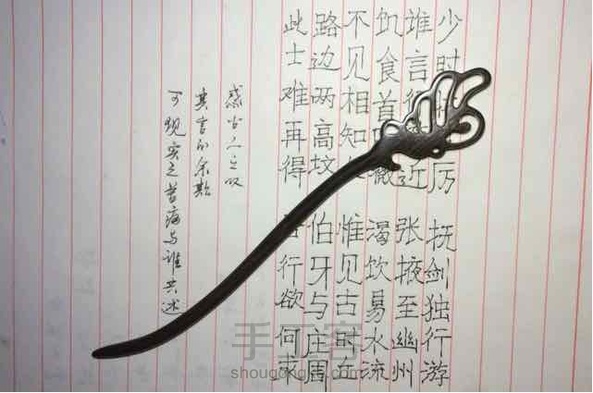 少时 厉 抚剑独行游
谁言行 近 张掖至幽州
饥食首 薇 渴饮易水流
不见相知 惟见古时丘
路边两高坟 伯牙与庄周
此士难再得 行欲何求
感古人之叹
其言的余欺
可现实之苦痛与谁共述
手工客